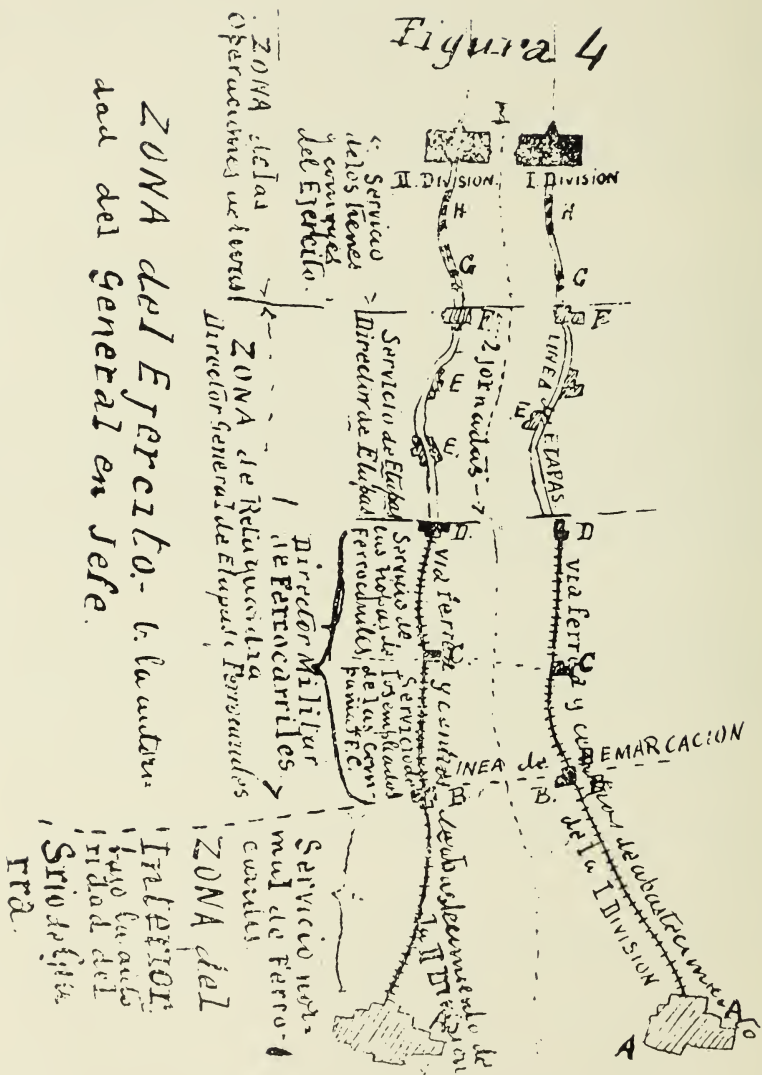 Figura 4
II. DIVISION.
I. DIVISION
H
H
G
G
F
F
E
E
E.
LINEA de ETAPAS
2 jornadas
D.
D
C
LINEA de DEMARCACION
B.
B.
A
A
via ferrea y centros de abastecimiento
de la I DIVISION
via ferrea y centros de abastecimiento de
la II DIVISION
Servicio
de los trenes
y convoyes
del Ejercito.
Servicio de Etapas
Director de Etapas
Servicio de
las tropas de
Ferrocarriles
Servicio de
los empleados
de las com-
pañias F.C.
Director Militar
de Ferrocarriles.
Servicio nor-
mal de Ferro-
carriles
ZONA de las
operaciones
ZONA de Retaguardia
Director General de Etapas y Ferrocarriles
ZONA del
Interior
bajo la auto
ridad del
Srio de Gue
rra.
ZONA del Ejercito.- b. la autori-
dad del General en Jefe.